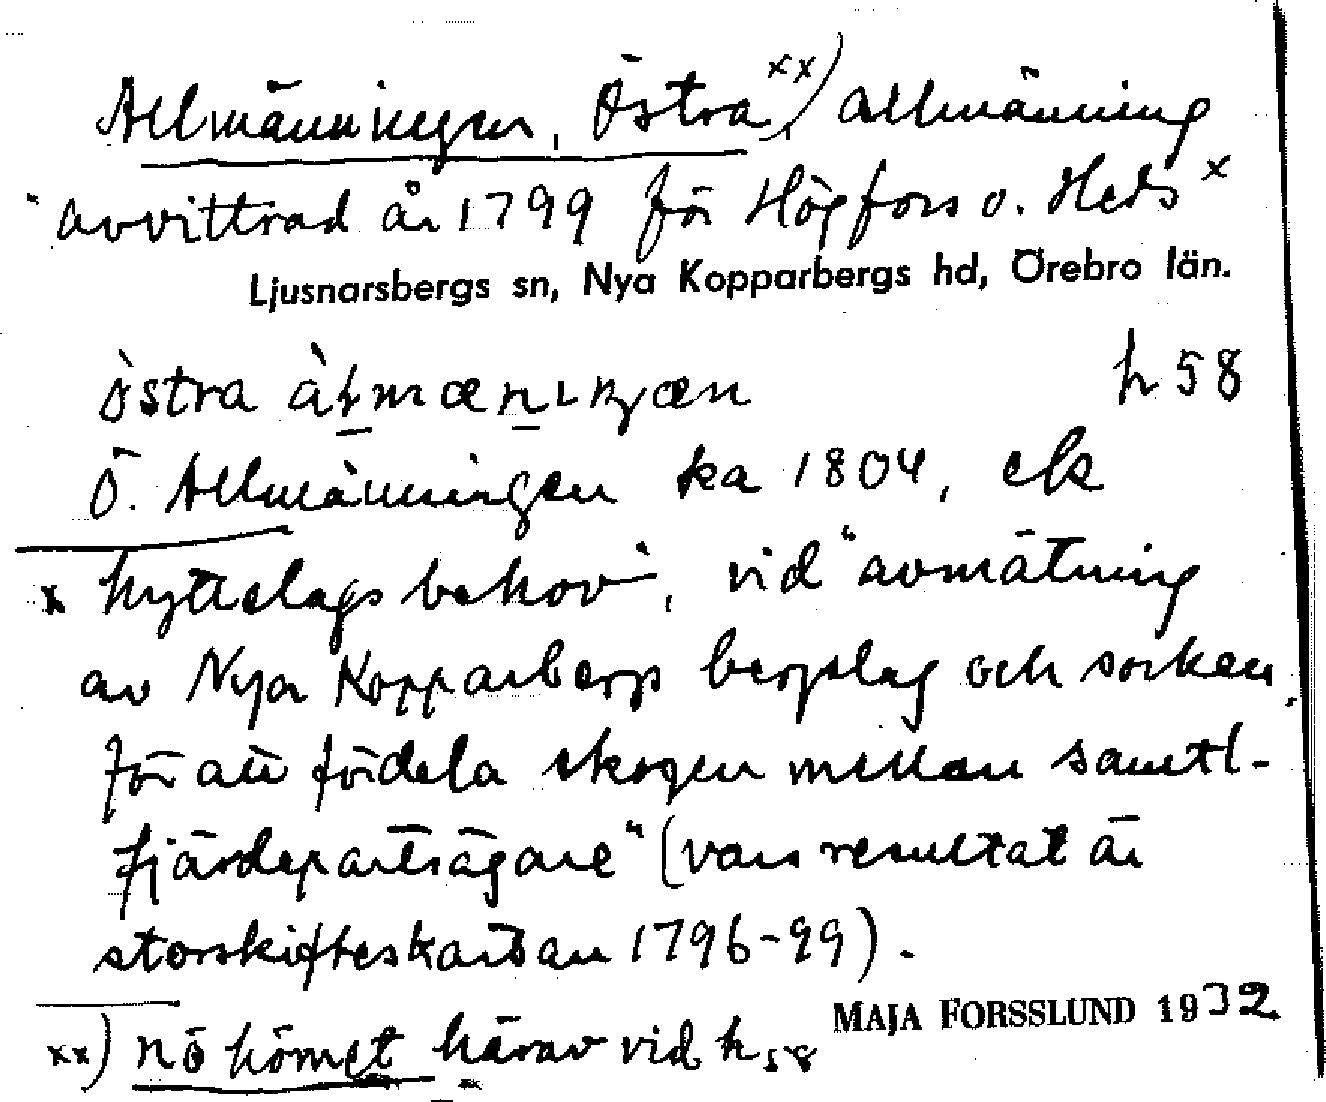 Allmänningen, Östra xx), allmänning
"avvittrad år 1799 för Högfors o. Heds x
Ljusnarsbergs sn, Nya Kopparbergs hd, Örebro län.
östra
h 58
Ö. Allmänningen ka 1804, ek
x hyttelags behov", vid "avmätning
av Nya Kopparbergs bergslag och socken
för att fördela skogen mellan samtl-
fjärdepartsägare" (vars resultat är
storskifteskartan 1796-99).
MAJA FORSSLUND 1932
xx) nö hörnet härav vid h 58